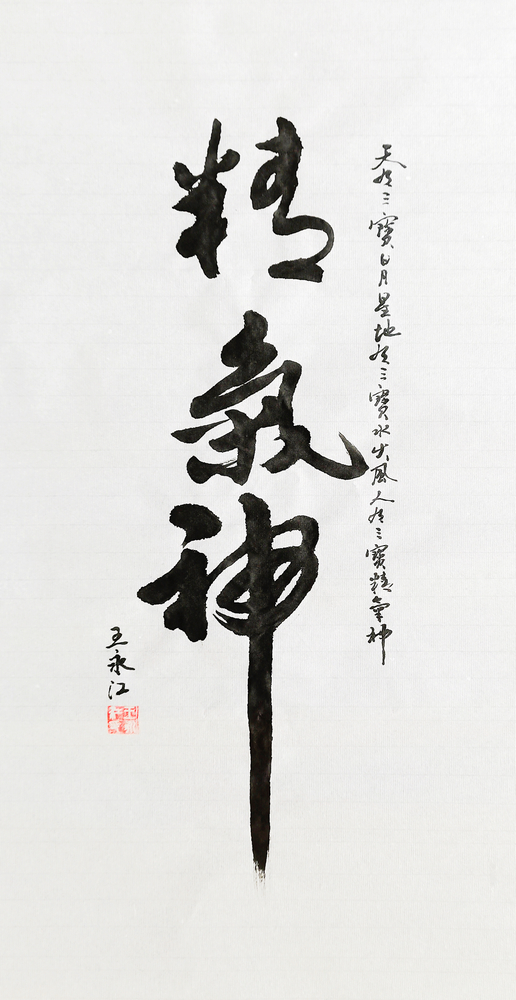 天有三寶日月星地有三寶水火風人有三寶精氣神
精氣神
王永江